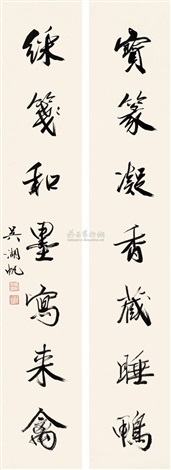 寶篆凝香藏睡鴨
綵箋和墨寫來禽
吳湖帆